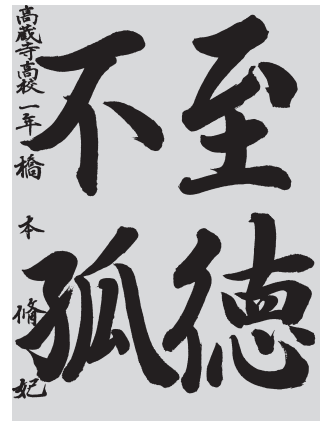 至徳
不孤
高蔵寺高校一年 橋本脩妃